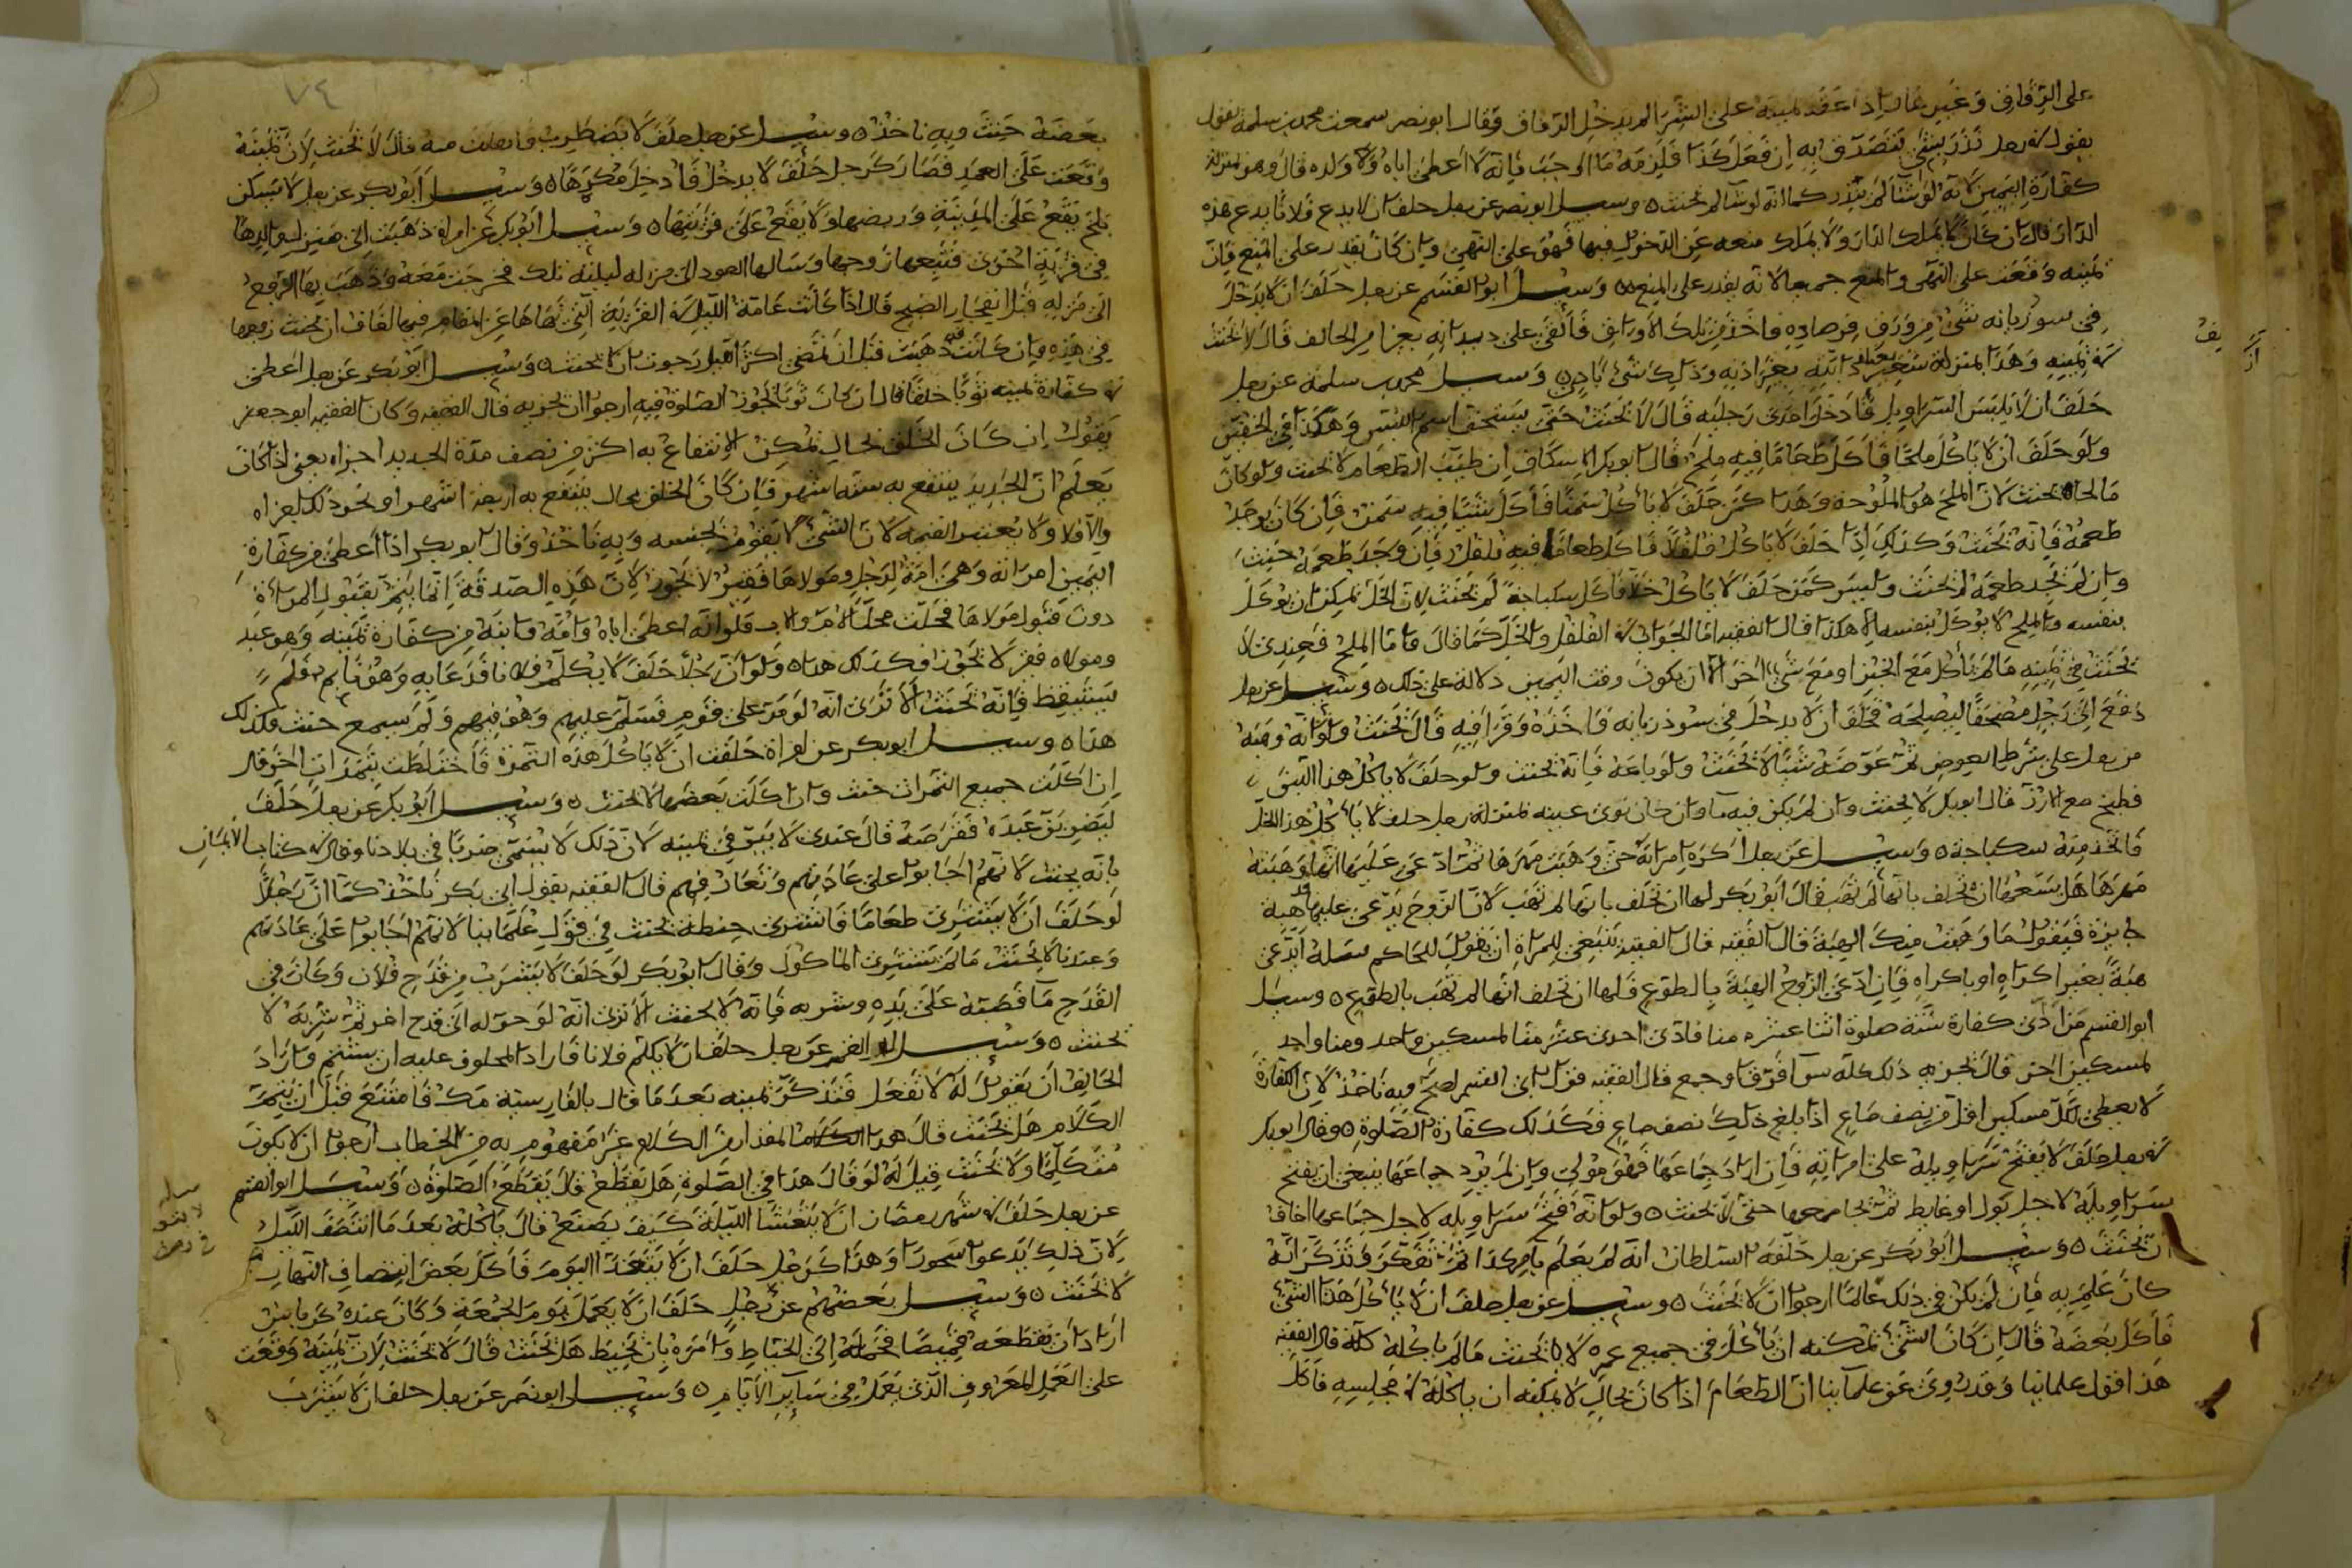 على الزقاق وغيره قال اذا عقد يمينه على الشرا لم يدخل الزقاق وقال ابو نصر سمعت محمد بن سلمة يقول
يقول في رجل نذر بشئ يتصدق به ان فعل كذا فلزمه ما اوجب فانه لا اعطى اباه ولا ولده قال وهو بمنزلة
كفارة اليمين لانه لو شا لم ينذر كما انه لو شا لم يحنث ه وسيل ابو نصر عن رجل حلف ان لا يدع فلانا يدع هذه
الدار قال ان كان لا يملك الدار ولا يملك منعه عن الدخول فيها فهو على النهي وان كان يقدر على المنع فان
يمينه وقعت على النهى والمنع جميعا لانه يقدر على المنع ه وسيل ابو القسم عن رجل حلف ان لا يدخل
في سوذيانه شئ من ورق فرصاده فاخذ من تلك الاوراق فالقى على ديدانه بغير امر الحالف قال لا يحنث
في يمينه وهذا بمنزلة شعير يعلف دابته بغير اذنه وذلك شئ بادر ه وسيل محمد بن سلمة عن رجل
حلف ان لا يلبس السراويل فادخل احدى رجليه قال لا يحنث حتى يستحق اسم اللبس وهكذا في الخفين
ولو حلف ان لا ياكل ملحا فاكل طعاما فيه ملح قال ابو بكر الاسكاف ان طيب الطعام لا يحنث ولو كان
مالحا يحنث لان الملح هو الملوحة وهذا كمن حلف لا ياكل سمنا فاكل شيئا فيه سمن فان كان يوجد
طعمه فانه يحنث وكذلك اذا حلف لا ياكل فلفلا فاكل طعاما فيه فلفل فان وجد طعمه حنث
وان لم يجد طعمه لم يحنث وليس كمن حلف لا ياكل خلا فاكل سكباجة لم يحنث لان الخل يمكن ان يوكل
بنفسه والملح لا يوكل بنفسه الا هكذا قال الفقيه اما الجواب في الفلفل والخل كما قال واما الملح فعندي لا
يحنث في يمينه ما لم ياكل مع الخبز او مع شئ اخر الا ان يكون وقت اليمين دلالة على ذلك ه وسيل عن رجل
دفع الى رجل مصحفا ليصلحه فحلف ان لا يدخل في سوذيانه فاخذه وقرا فيه قال يحنث ولو انه وهبه
من رجل على شرط العوض ثم عوضه شيئا لا يحنث ولو باعه فانه يحنث ولو حلف لا ياكل هذا اللبن
فطبخ مع الارز قال ابو بكر لا يحنث وان لم يكن فيه ما وان كان نوى عينه بمنزلة رجل حلف لا ياكل هذا الخل
فاتخذ منه سكباجة ه وسيل عن رجل اكره امراته حتى وهبت مهرها ثم ادعى عليها انها وهبته
مهرها هل يسعها ان تحلف بانها لم تهب قال ابو بكر لها ان تحلف بانها لم تهب لان الزوج يدعي عليها هبة
جايزة فيقول ما وهبت منك الهبة قال الفقيه قال الفقيه ينبغي للمراة ان تقول للحاكم سله ايدعي
هبة بغير اكراه او باكراه فان ادعى الزوج الهبة بالطوع فلها ان تحلف انها لم تهب بالطوع ه وسيل
ابو القسم من ادى كفارة ستة صلوة اثنا عشره منا فادى احدى عشر منا لمسكين واحد ومنا واحد
لمسكين اخر قال يجزيه ذلك كله سوا فرق او جمع قال الفقيه قول ابي القسم اصح وبه ناخذ لان الكفارة
لا يعطى لكل مسكين اقل من نصف صاع اذا بلغ ذلك نصف صاع فكذلك كفارة الصلوة ه وقال ابو بكر
في رجل حلف لا يفتح سراويله على امراته فان اراد جماعها فهو مولي وان لم يرد جماعها ينبغي ان يفتح
سراويله لاجل بول او غايط ثم يجامعها حتى لا يحنث ه ولو انه فتح سراويله لاجل جماعها اخاف
ان يحنث ه وسيل ابو بكر عن رجل حلفه السلطان انه لم يعلم بامر كذا ثم تفكر فتذكر انه
كان علم به فان لم يكن في ذلك عالما ارجوا ان لا يحنث ه وسيل عن رجل حلف ان لا ياكل هذا الشئ
فاكل بعضه قال ان كان الشئ يمكنه ان ياكل في جميع عمره لا يحنث ما لم ياكله كله قال الفقيه
هذا قول علمائنا وقد روى عن علماينا ان الطعام اذا كان بحال لا يمكنه ان ياكله في مجلسه فاكل
٧٤
بعضه حنث وبه ناخذ ه وسيل عن رجل حلف لا يضطرب فانفلت منه قال لا يحنث لان يمينه
وقعت على العمد فصار كرجل حلف لا يدخل فادخل مكرها ه وسيل ابو بكر عن رجل لا يسكن
بلخ يقع على المدينة وربضها ولا يقع على قريتها ه وسيل ابو بكر عن امراة ذهبت الى منزل والدها
في قرية اخرى فتبعها زوجها وسالها العود الى منزله ليلته تلك فخرجت معه وذهب بها الزوج
الى منزله قبل انفجار الصبح قال اذا كانت عامة الليل في القرية التي نهاها عن المقام فيها اخاف ان يحنث زوجها
في هذه وان كانت قد ذهبت قبل ان يمضى اكثر الليل رجوت ان لا يحنث ه وسيل ابو بكر عن رجل اعطى
في كفارة يمينه ثوبا خلقا قال ان كان ثوبا يجوز الصلوة فيه ارجوا ان يجزيه قال الفقيه وكان الفقيه ابو جعفر
يقول ان كان الخلق بحال يمكن الانتفاع به اكثر من نصف مدة الجديد اجزاه يعني اذا كان
يعلم ان الجديد ينتفع به ستة اشهر فان كان الخلق بحال ينتفع به اربعة اشهر او نحو ذلك اجزاه
والا فلا ولا يعتبر القيمة لان الشئ لا يقوم بجنسه وبه ناخذ وقال ابو بكر اذا اعطى من كفارة
اليمين امراته وهى امة لرجل ومولاها فقير لا يجوز لان هذه الصدقة انما يتم بقبول المراة
دون قبول مولاها فحلت محل الام والاب فلو انه اعطى اباه وامه وابنه من كفارة يمينه وهو عبد
ومولاه فقير لا يجوز فكذلك هذا ه ولو ان رجلا حلف لا يكلم فلانا فدعا به وهو نايم فلم
يستيقظ فانه يحنث الا ترى انه لو مر على قوم فسلم عليهم وهو فيهم ولم يسمع حنث فكذلك
هذا ه وسيل ابو بكر عن امراة حلفت ان لا ياكل هذه التمرة فاختلطت بتمرات اخر قال
ان اكلت جميع التمرات حنث وان اكلت بعضها لا يحنث ه وسيل ابو بكر عن رجل حلف
ليضربن عبده فقرصه قال عندى لا يبر في يمينه لان ذلك لا يسمى ضربا في بلادنا وقال في كتاب الايمان
بانه يحنث لانهم اجابوا على عاداتهم وتعارفهم قال الفقيه بقول ابي بكر ناخذ كما ان رجلا
لو حلف ان لا يشترى طعاما فاشترى حنطة يحنث في قول علماينا لانهم اجابوا على عاداتهم
وعندنا لا يحنث ما لم يشترى الماكول وقال ابو بكر لو حلف لا يشرب من قدح فلان وكان في
القدح ما فصبه على يده وشربه فانه لا يحنث الا ترى انه لو حوله الى قدح اخر ثم شربه لا
يحنث ه وسيل ابو القسم عن رجل حلف ان لا يكلم فلانا فاراد المحلوف عليه ان يشتم واراد
الحالف ان يقول له لا تفعل فتذكر يمينه بعد ما قال بالفارسية مك فامتنع قبل ان يتم
الكلام هل يحنث قال هذا المقدار من الكلام غير مفهوم به من الخطاب ارجوا ان لا يكون
متكلما ولا يحنث قيل له لو قال هذا في الصلوة هل يقطع قال يقطع الصلوة ه وسيل ابو القسم
عن رجل حلف في شهر رمضان ان لا يتعشا الليلة كيف يصنع قال ياكله بعد ما انتصف الليل
لان ذلك يدعوا سحورا وهذا كرجل حلف ان لا يتغدا اليوم فاكل بعض انتصاف النهار
لا يحنث ه وسيل بعضهم عن رجل حلف ان لا يعمل يوم الجمعة وكان عنده كرباس
اراد ان يقطعه قميصا فحمله الى الخياط وامره بان يخيط هل يحنث قال لا يحنث لان يمينه وقعت
على العمل المعروف الذى يعمل في ساير الايام ه وسيل ابو نصر عن رجل حلف ان لا يشرب